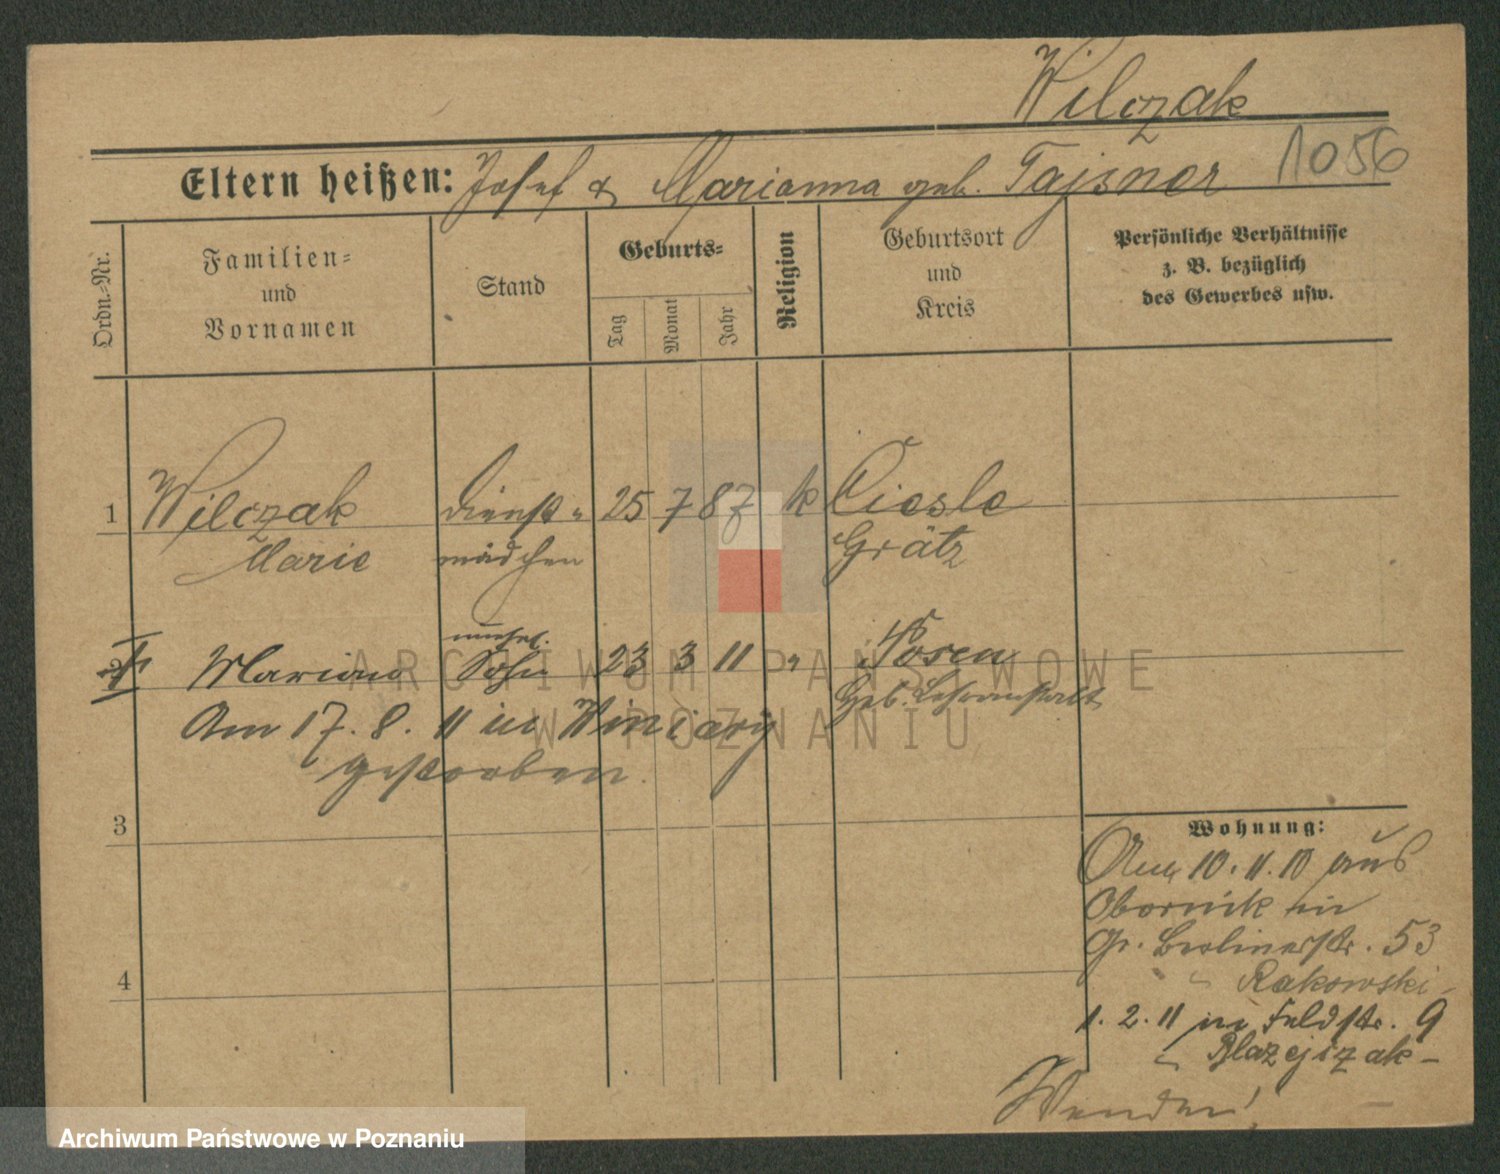 Wilczak
1056
Eltern heißen: Josef & Marianna geb. Tajsner
Ordn.-Nr.
Familien-
und
Vornamen
Stand
Geburts-
Tag
Monat
Jahr
Religion
Geburtsort
und
Kreis
Persönliche Verhältnisse
z. B. bezüglich
des Gewerbes usw.
1 Wilczak Dienst- 25 7 87 k Ciesle
Marie mädchen Grätz
unehel.
2 Marian Sohn 23 3 11 " Posen
Geb. Lehranstalt
Am 17. 8. 11 in Winiary
gestorben.
3
4
Wohnung:
Am 10.11.10 aus
Obornik in
Gr. Berlinerstr. 53
Rakowski
1. 2. 11 in Feldstr. 9
Blazejczak
Wenden!
ARCHIWUM PAŃSTWOWE
W POZNANIU
Archiwum Państwowe w Poznaniu